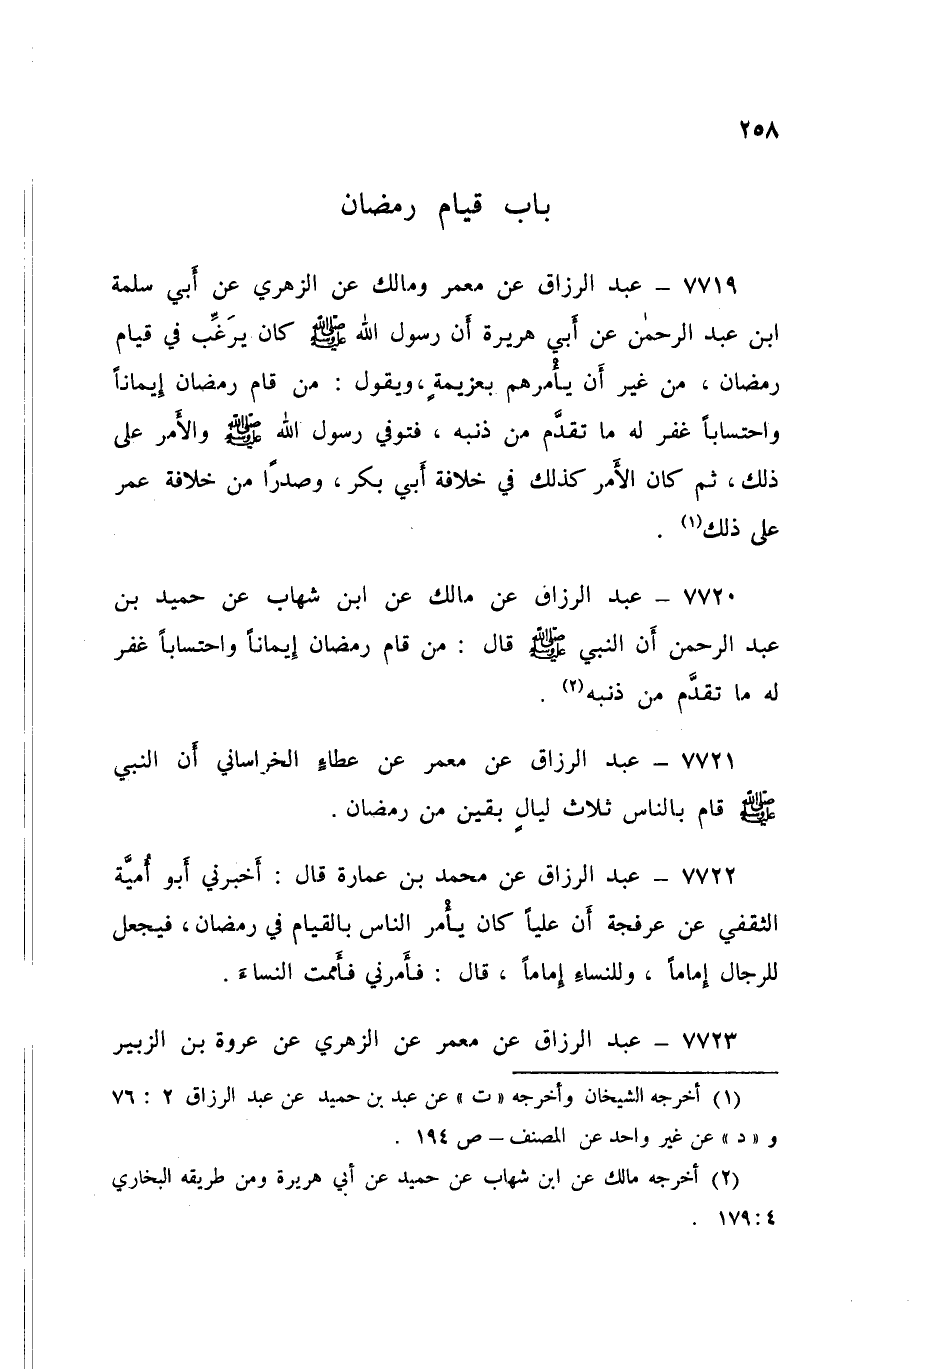 ٢٥٨
باب قيام رمضان
٧٧١٩ – عبد الرزاق عن معمر ومالك عن الزهري عن أَبي سلمة
ابن عبد الرحمٰن عن أَبي هريرة أَن رسول الله ﷺ كان يرَغِّب في قيام
رمضان ، من غير أَن يأْمرهم بعزيمةٍ ، ويقول : من قام رمضان إِيماناً
واحتساباً غفر له ما تقدَّم من ذنبه ، فتوفي رسول الله ﷺ والأَمر على
ذلك ، ثم كان الأَمر كذلك في خلافة أَبي بكر ، وصدرًا من خلافة عمر
على ذلك(١) .
٧٧٢٠ – عبد الرزاق عن مالك عن ابن شهاب عن حميد بن
عبد الرحمن أَن النبي ﷺ قال : من قام رمضان إِيماناً واحتساباً غفر
له ما تقدَّم من ذنبه(٢) .
٧٧٢١ – عبد الرزاق عن معمر عن عطاءٍ الخراساني أَن النبي
ﷺ قام بالناس ثلاث ليالٍ بقين من رمضان .
٧٧٢٢ – عبد الرزاق عن محمد بن عمارة قال : أَخبرني أَبو أُميَّة
الثقفي عن عرفجة أَن علياً كان يأْمُر الناس بالقيام في رمضان ، فيجعل
للرجال إِماماً ، وللنساءِ إِماماً ، قال : فأَمرني فأَممت النساءَ .
٧٧٢٣ – عبد الرزاق عن معمر عن الزهري عن عروة بن الزبير
(١) أخرجه الشيخان وأخرجه « ت » عن عبد بن حميد عن عبد الرزاق ٢ : ٧٦
و « د » عن غير واحد عن المصنف – ص ١٩٤ .
(٢) أخرجه مالك عن ابن شهاب عن حميد عن أبي هريرة ومن طريقه البخاري
٤ : ١٧٩ .